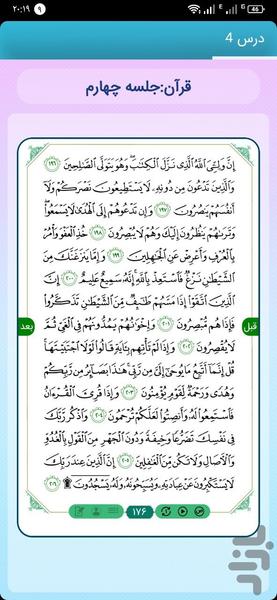 ۲۰:۱۹
۹
46
درس 4
قرآن:جلسه چهارم
إِنَّ وَلِـِّۧيَ اللَّهُ الَّذِي نَزَّلَ الْكِتَابَ وَهُوَ يَتَوَلَّى الصَّالِحِينَ ۱۹۶
وَالَّذِينَ تَدْعُونَ مِن دُونِهِ لَا يَسْتَطِيعُونَ نَصْرَكُمْ وَلَا
أَنفُسَهُمْ يَنصُرُونَ ۱۹۷ وَإِن تَدْعُوهُمْ إِلَى الْهُدَىٰ لَا يَسْمَعُوا
وَتَرَاهُمْ يَنظُرُونَ إِلَيْكَ وَهُمْ لَا يُبْصِرُونَ ۱۹۸ خُذِ الْعَفْوَ وَأْمُرْ
بِالْعُرْفِ وَأَعْرِضْ عَنِ الْجَاهِلِينَ ۱۹۹ وَإِمَّا يَنزَغَنَّكَ مِنَ
الشَّيْطَانِ نَزْغٌ فَاسْتَعِذْ بِاللَّهِ إِنَّهُ سَمِيعٌ عَلِيمٌ ۲۰۰ إِنَّ
الَّذِينَ اتَّقَوْا إِذَا مَسَّهُمْ طَائِفٌ مِنَ الشَّيْطَانِ تَذَكَّرُوا
فَإِذَا هُم مُبْصِرُونَ ۲۰۱ وَإِخْوَانُهُمْ يَمُدُّونَهُمْ فِي الْغَيِّ ثُمَّ
لَا يُقْصِرُونَ ۲۰۲ وَإِذَا لَمْ تَأْتِهِم بِآيَةٍ قَالُوا لَوْلَا اجْتَبَيْتَهَا
قُلْ إِنَّمَا أَتَّبِعُ مَا يُوحَىٰ إِلَيَّ مِن رَبِّي هَٰذَا بَصَائِرُ مِن رَبِّكُمْ
وَهُدًى وَرَحْمَةٌ لِقَوْمٍ يُؤْمِنُونَ ۲۰۳ وَإِذَا قُرِئَ الْقُرْآنُ
فَاسْتَمِعُوا لَهُ وَأَنصِتُوا لَعَلَّكُمْ تُرْحَمُونَ ۲۰۴ وَاذْكُر رَبَّكَ
فِي نَفْسِكَ تَضَرُّعًا وَخِيفَةً وَدُونَ الْجَهْرِ مِنَ الْقَوْلِ بِالْغُدُوِّ
وَالْآصَالِ وَلَا تَكُن مِنَ الْغَافِلِينَ ۲۰۵ إِنَّ الَّذِينَ عِندَ رَبِّكَ
لَا يَسْتَكْبِرُونَ عَنْ عِبَادَتِهِ وَيُسَبِّحُونَهُ وَلَهُ يَسْجُدُونَ ۩ ۲۰۶
قبل
بعد
۱۷۶
بازار